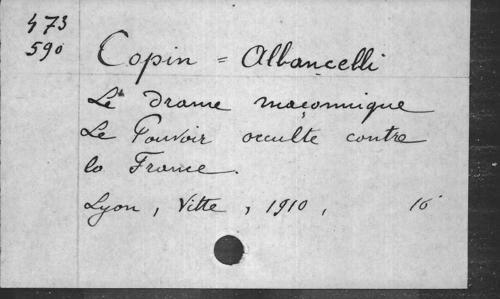 473
590
Copin = Albancelli
Le drame maçonnique
Le Pouvoir occulte contre
la France.
Lyon, Vitte, 1910, 16